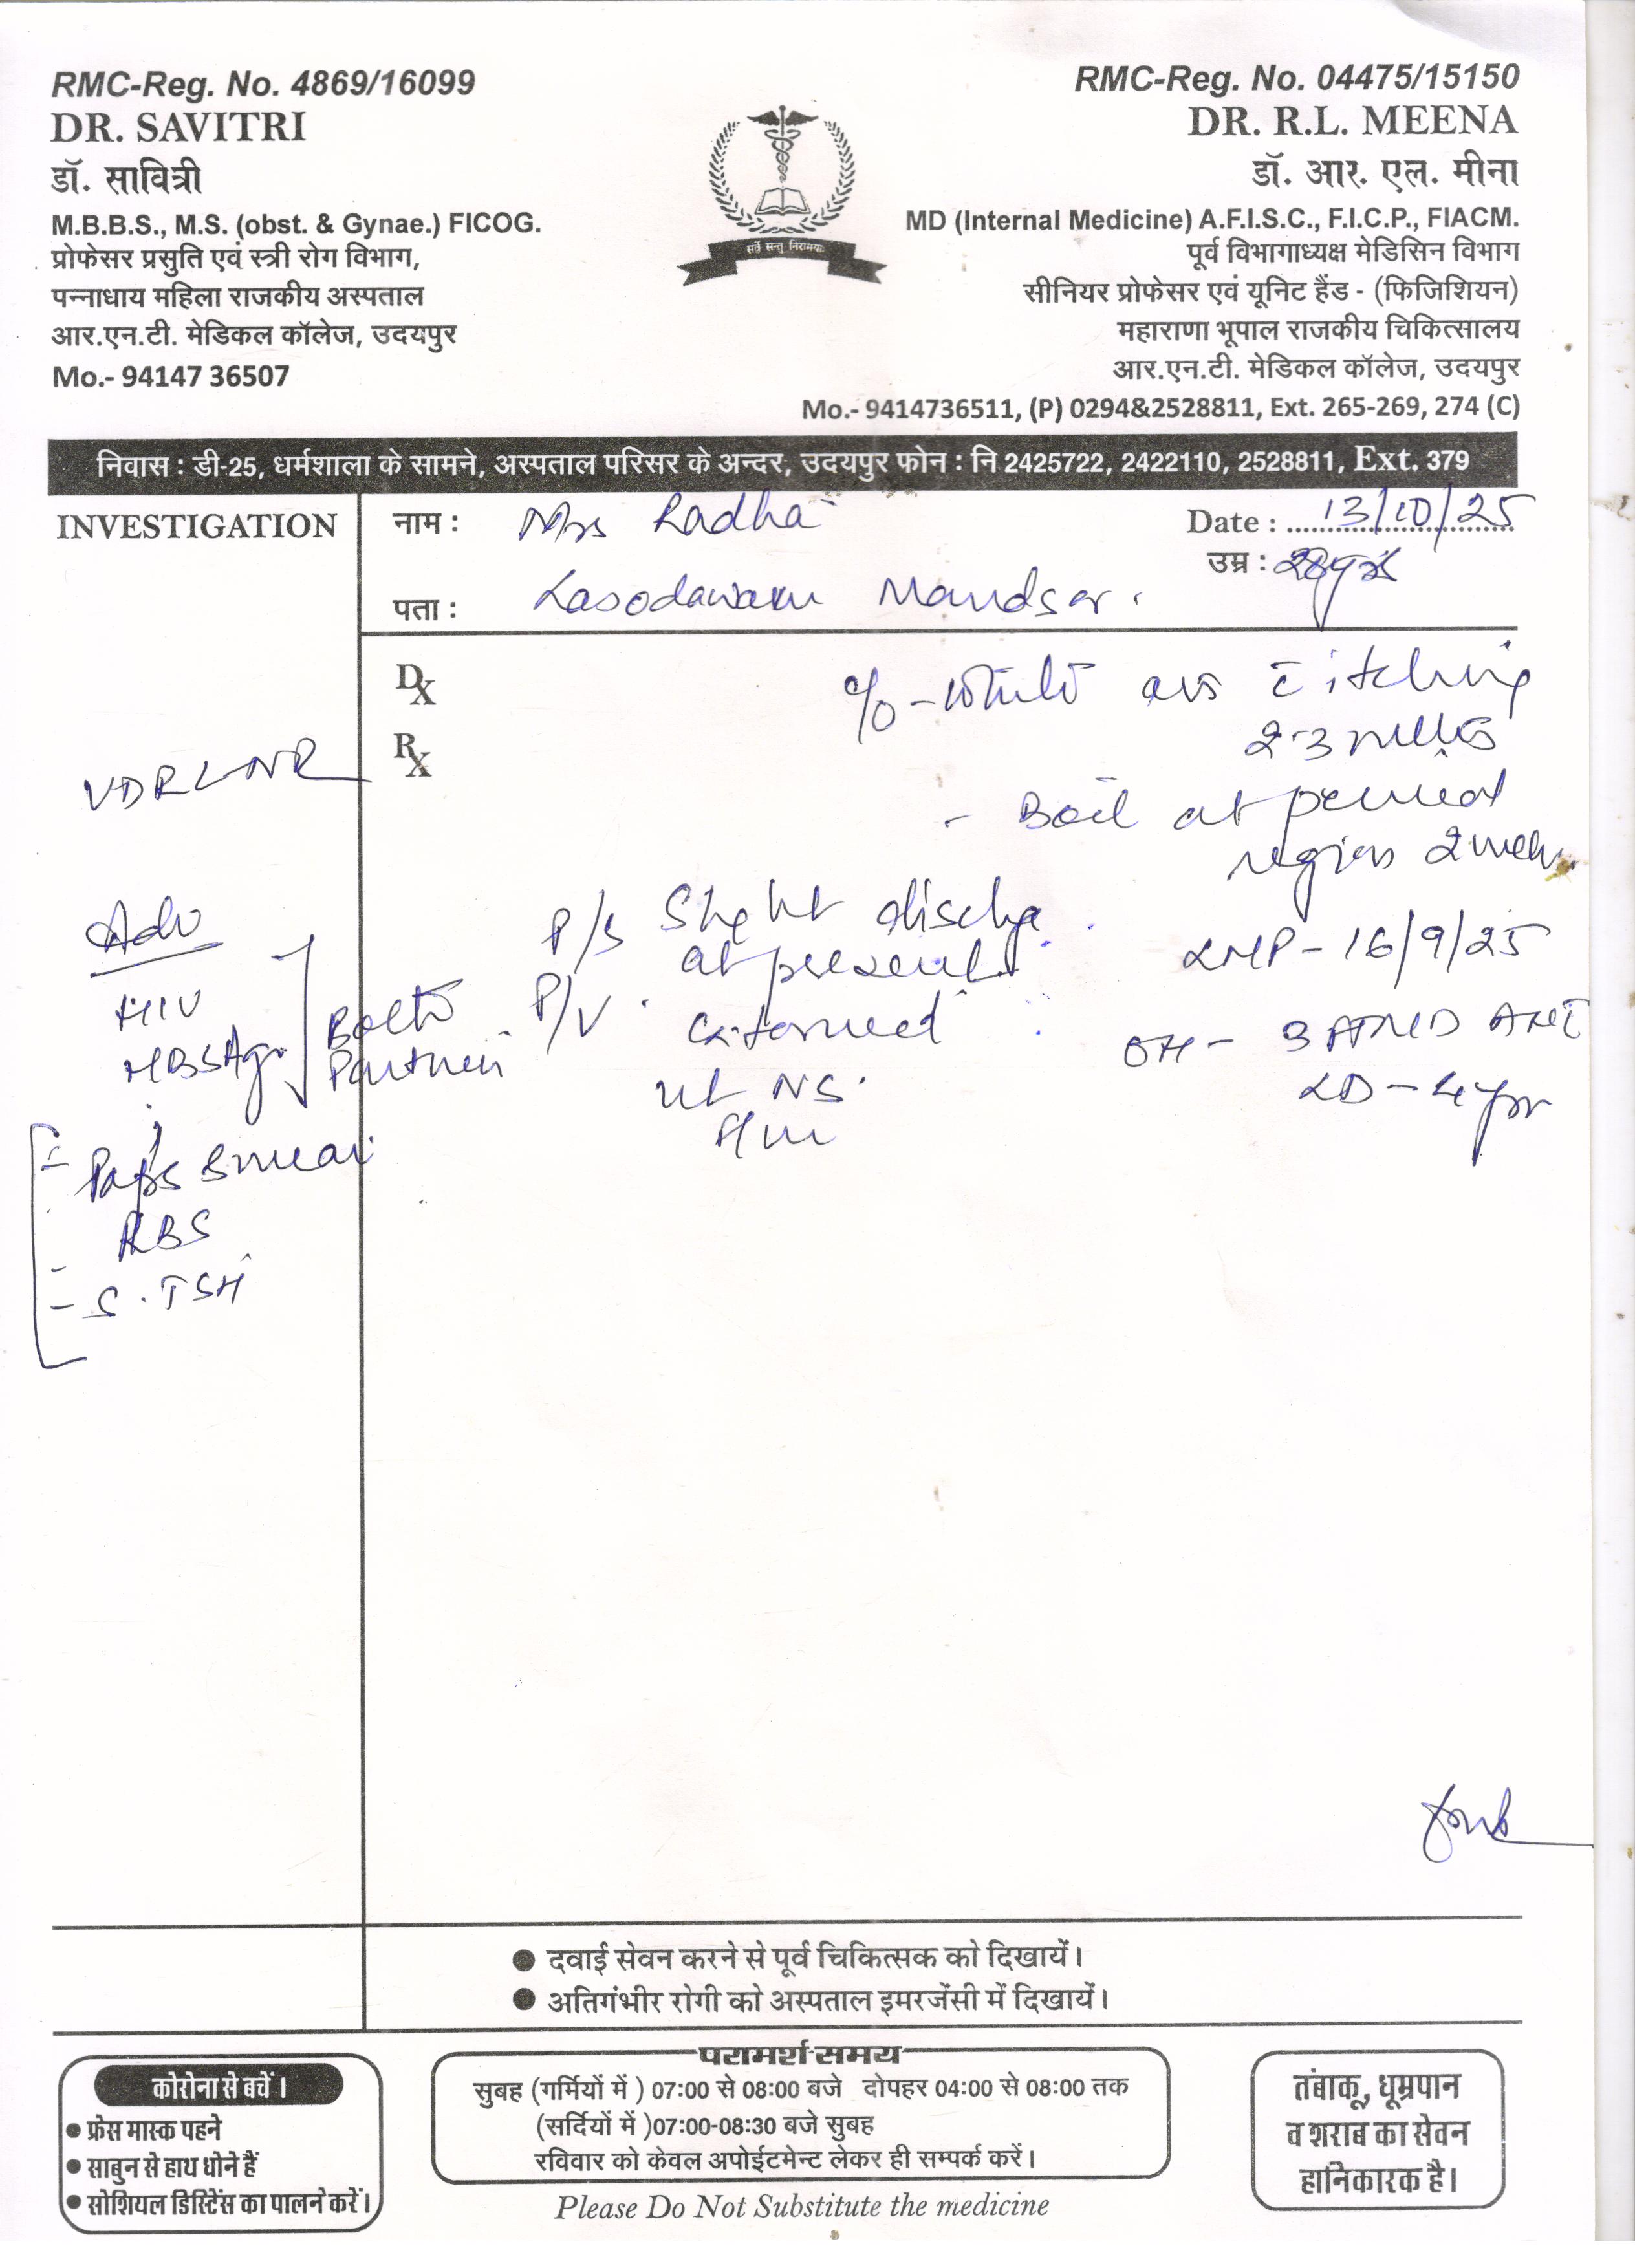 RMC-Reg. No. 4869/16099
DR. SAVITRI
डॉ. सावित्री
M.B.B.S., M.S. (obst. & Gynae.) FICOG.
प्रोफेसर प्रसुति एवं स्त्री रोग विभाग,
पन्नाधाय महिला राजकीय अस्पताल
आर.एन.टी. मेडिकल कॉलेज, उदयपुर
Mo.- 94147 36507
सर्वे सन्तु निरामयाः
RMC-Reg. No. 04475/15150
DR. R.L. MEENA
डॉ. आर. एल. मीना
MD (Internal Medicine) A.F.I.S.C., F.I.C.P., FIACM.
पूर्व विभागाध्यक्ष मेडिसिन विभाग
सीनियर प्रोफेसर एवं यूनिट हैंड - (फिजिशियन)
महाराणा भूपाल राजकीय चिकित्सालय
आर.एन.टी. मेडिकल कॉलेज, उदयपुर
Mo.- 9414736511, (P) 0294&2528811, Ext. 265-269, 274 (C)
निवास : डी-25, धर्मशाला के सामने, अस्पताल परिसर के अन्दर, उदयपुर फोन : नि 2425722, 2422110, 2528811, Ext. 379
INVESTIGATION
नाम : Mrs Radha
Date : 13/10/25
उम्र : 28yrs
पता : Mandsor.
Dx
c/o - white itching
Rx
2-3
- Boil at perineal
region 2
VDRL-NR
Adv
HIV
HBSAg
Both
Partner
- Pap's Smear
RBS
- S. TSH
P/S Slight
at present
P/V
ut NS
LMP - 16/9/25
OH - 3
LD - 4 yr
दवाई सेवन करने से पूर्व चिकित्सक को दिखायें।
अतिगंभीर रोगी को अस्पताल इमरजेंसी में दिखायें।
कोरोना से बचें।
फ्रेस मास्क पहने
साबुन से हाथ धोने हैं
सोशियल डिस्टिेंस का पालन करें।
परामर्श समय
सुबह (गर्मियों में ) 07:00 से 08:00 बजे दोपहर 04:00 से 08:00 तक
(सर्दियों में )07:00-08:30 बजे सुबह
रविवार को केवल अपोईटमेन्ट लेकर ही सम्पर्क करें।
Please Do Not Substitute the medicine
तंबाकू, धूम्रपान
व शराब का सेवन
हानिकारक है।